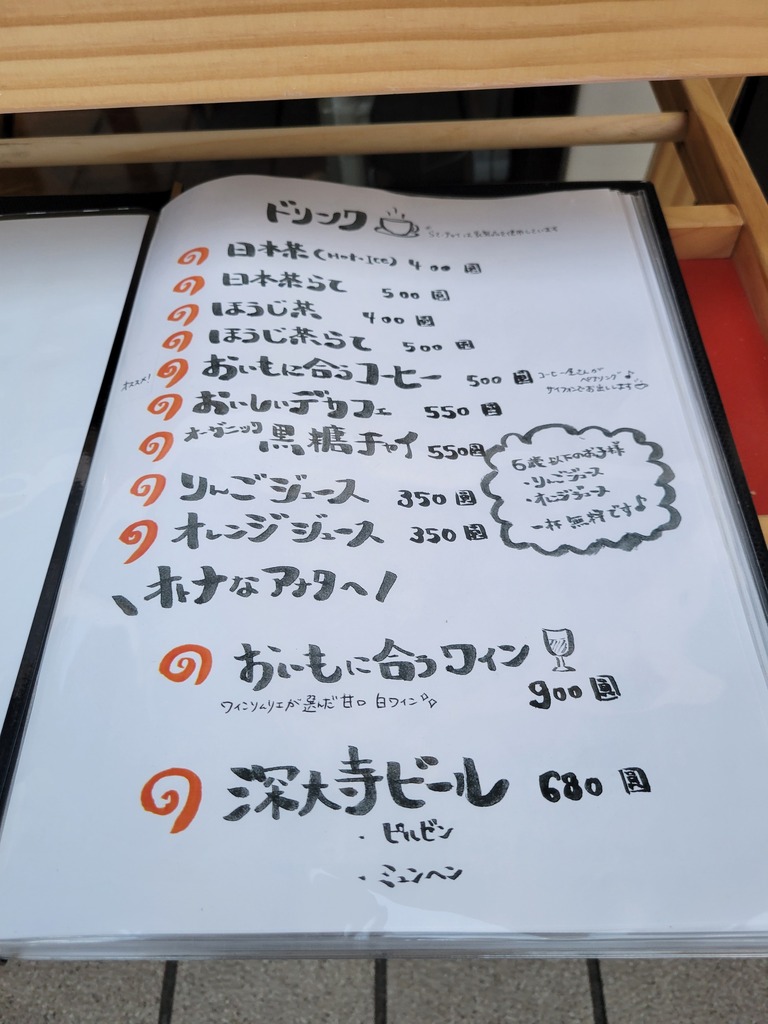 ドリンク
日本茶(Hot・Ice) 400 圓
日本茶らて 500 圓
ほうじ茶 400 圓
ほうじ茶らて 500 圓
オススメ! おいもに合うコーヒー 500 圓
コーヒー屋さんが
ペアリング♪
サイフォンでお出しします
おいしいデカフェ 550 圓
オーガニック 黒糖チャイ 550 圓
りんごジュース 350 圓
オレンジジュース 350 圓
6歳以下のお子様
・りんごジュース
・オレンジジュース
一杯無料です♪
\オトナなアナタへ/
おいもに合うワイン
900 圓
ワインソムリエが選んだ甘口白ワイン
深大寺ビール 680 圓
・ピルゼン
・ミュンヘン